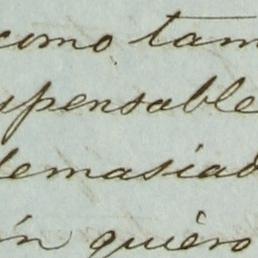 como tam
spensable
demasiad
ín quiero